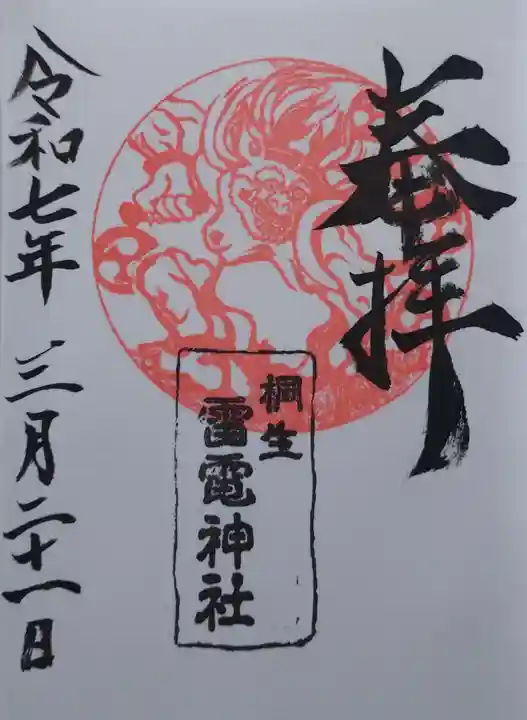 奉拝
桐生
雷電神社
令和七年 三月二十一日